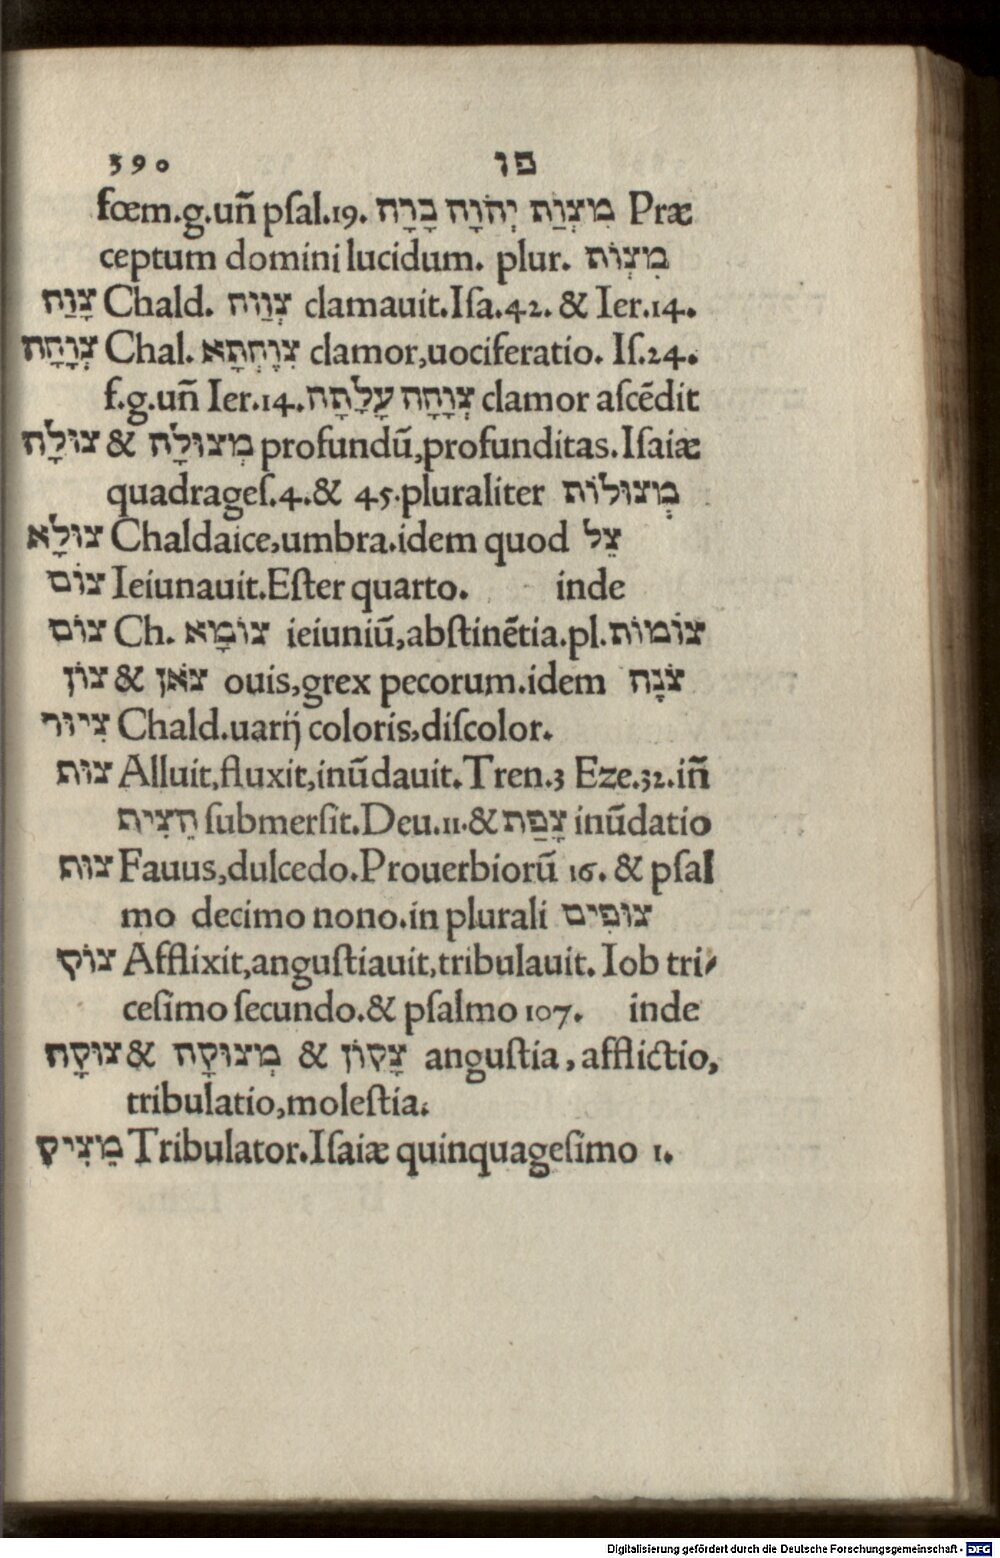 390 פו
fœm.g.uñ psal.19. מִצְוַת יְהֹוָה בָרָה Præ
ceptum domini lucidum. plur. מִצְוֹת
צָוַח Chald. צְוַח clamauit.Isa.42. & Ier.14.
צְוָחָה Chal. צִוְחָתָא clamor,uociferatio. Is.24.
f.g.uñ Ier.14.צְוָחָה עָלָתָה clamor ascēdit
צוּלָה & מְצוּלָה profundū,profunditas.Isaiæ
quadrages.4.& 45.pluraliter מְצוּלוֹת
צוּלָא Chaldaice,umbra.idem quod צֵל
צוֹם Ieiunauit.Ester quarto. inde
צוֹם Ch. צוֹמָא ieiuniū,abstinētia.pl.צוֹמוֹת
צוֹן & צֹאן ouis,grex pecorum.idem צֹנָה
צִיוּר Chald.uarij coloris,discolor.
צוּת Alluit,fluxit,inūdauit.Tren.3 Eze.32.iñ
הֵצִית submersit.Deu.11.&צָפַת inūdatio
צוּת Fauus,dulcedo.Prouerbiorū 16. & psal
mo decimo nono.in plurali צוּפִים
צוֹק Afflixit,angustiauit,tribulauit. Iob tri⸗
cesimo secundo.& psalmo 107. inde
צוּקָה & מְצוּקָה & צָקוֹן angustia, afflictio,
tribulatio,molestia.
מֵצִיק Tribulator.Isaiæ quinquagesimo 1.
Digitalisierung gefördert durch die Deutsche Forschungsgemeinschaft - DFG